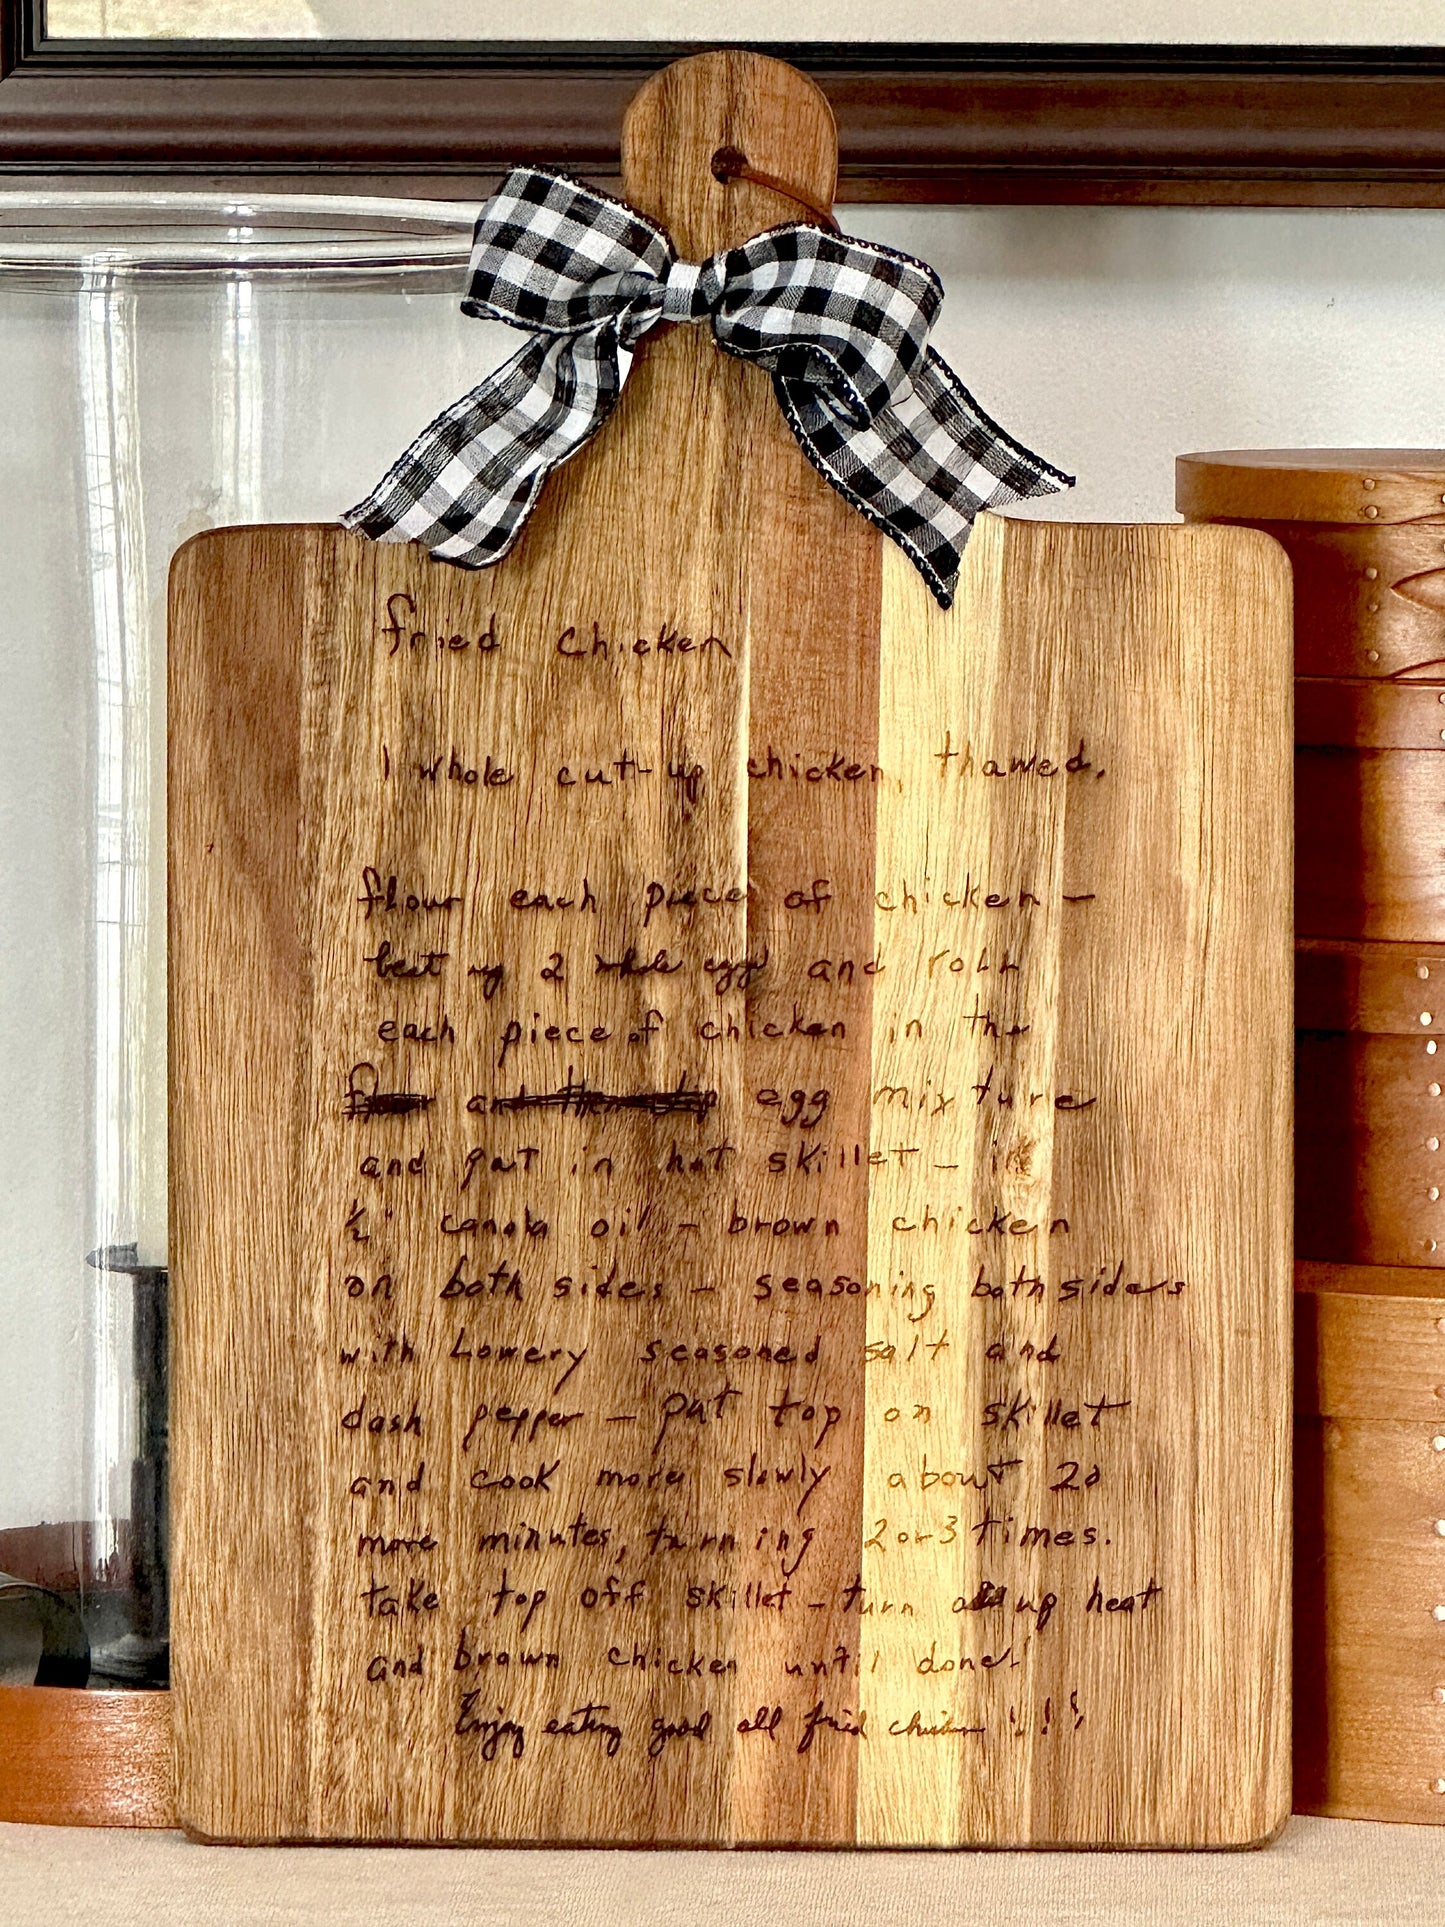 fried chicken
1 whole cut-up chicken, thawed.
flour each piece of chicken -
beat up 2 whole eggs and roll
each piece of chicken in the
egg mixture
and put in hot skillet - in
½" canola oil - brown chicken
on both sides - seasoning both siders
with Lowery seasoned salt and
dash pepper - put top on skillet
and cook more slowly about 20
more minutes, turning 2 or 3 times.
take top off skillet - turn up heat
and brown chicken until done!
Enjoy eating good all fried chicken !!!